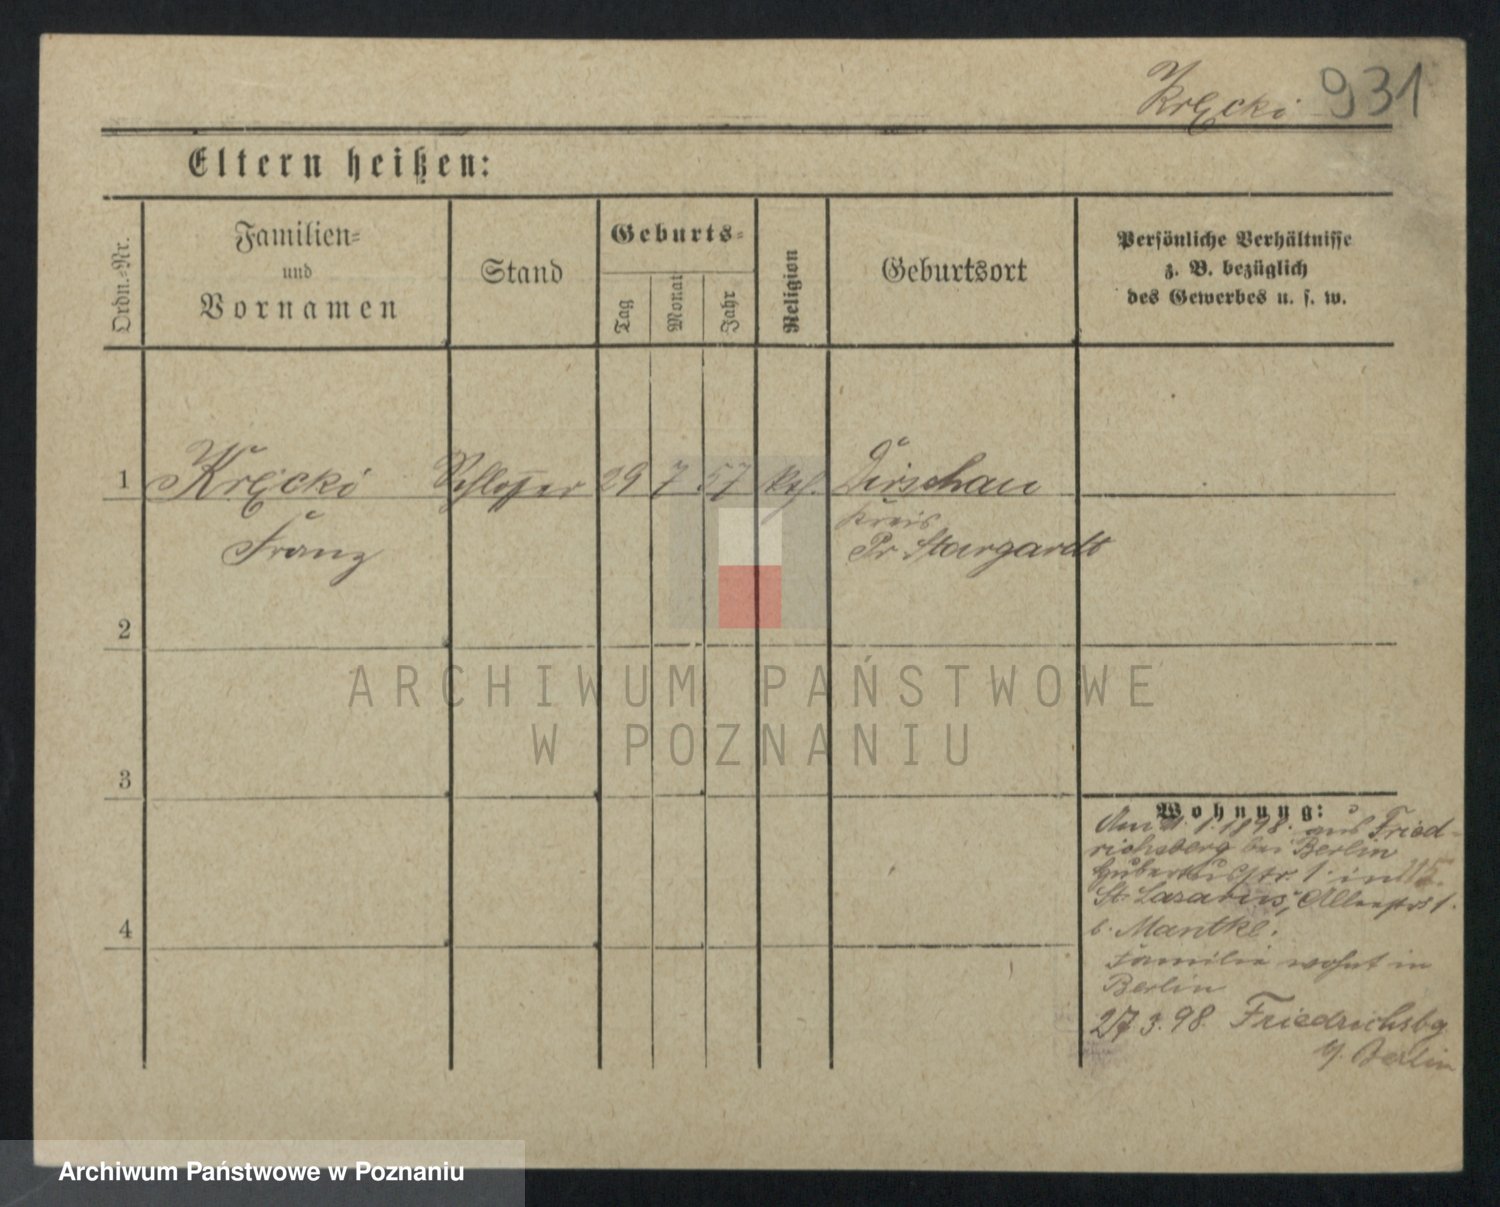 Kręcki 931
Eltern heißen:
Ordn.-Nr.
Familien-
und
Vornamen
Stand
Geburts-
Tag
Monat
Jahr
Religion
Geburtsort
Persönliche Verhältnisse
z. B. bezüglich
des Gewerbes u. s. w.
1 Kręcki Schlosser 29 7 57 kath. Dirschau
Kreis
Franz Pr Stargardt
2
3
4
ARCHIWUM PAŃSTWOWE
W POZNANIU
Wohnung:
Am 1. 1898. aus Fried-
richsberg bei Berlin
Hubertusstr. 1 in
St. Lazarus, 1.
b. Mantke.
Familie wohnt in
Berlin
27.3.98. Friedrichsbg
b/. Berlin
Archiwum Państwowe w Poznaniu